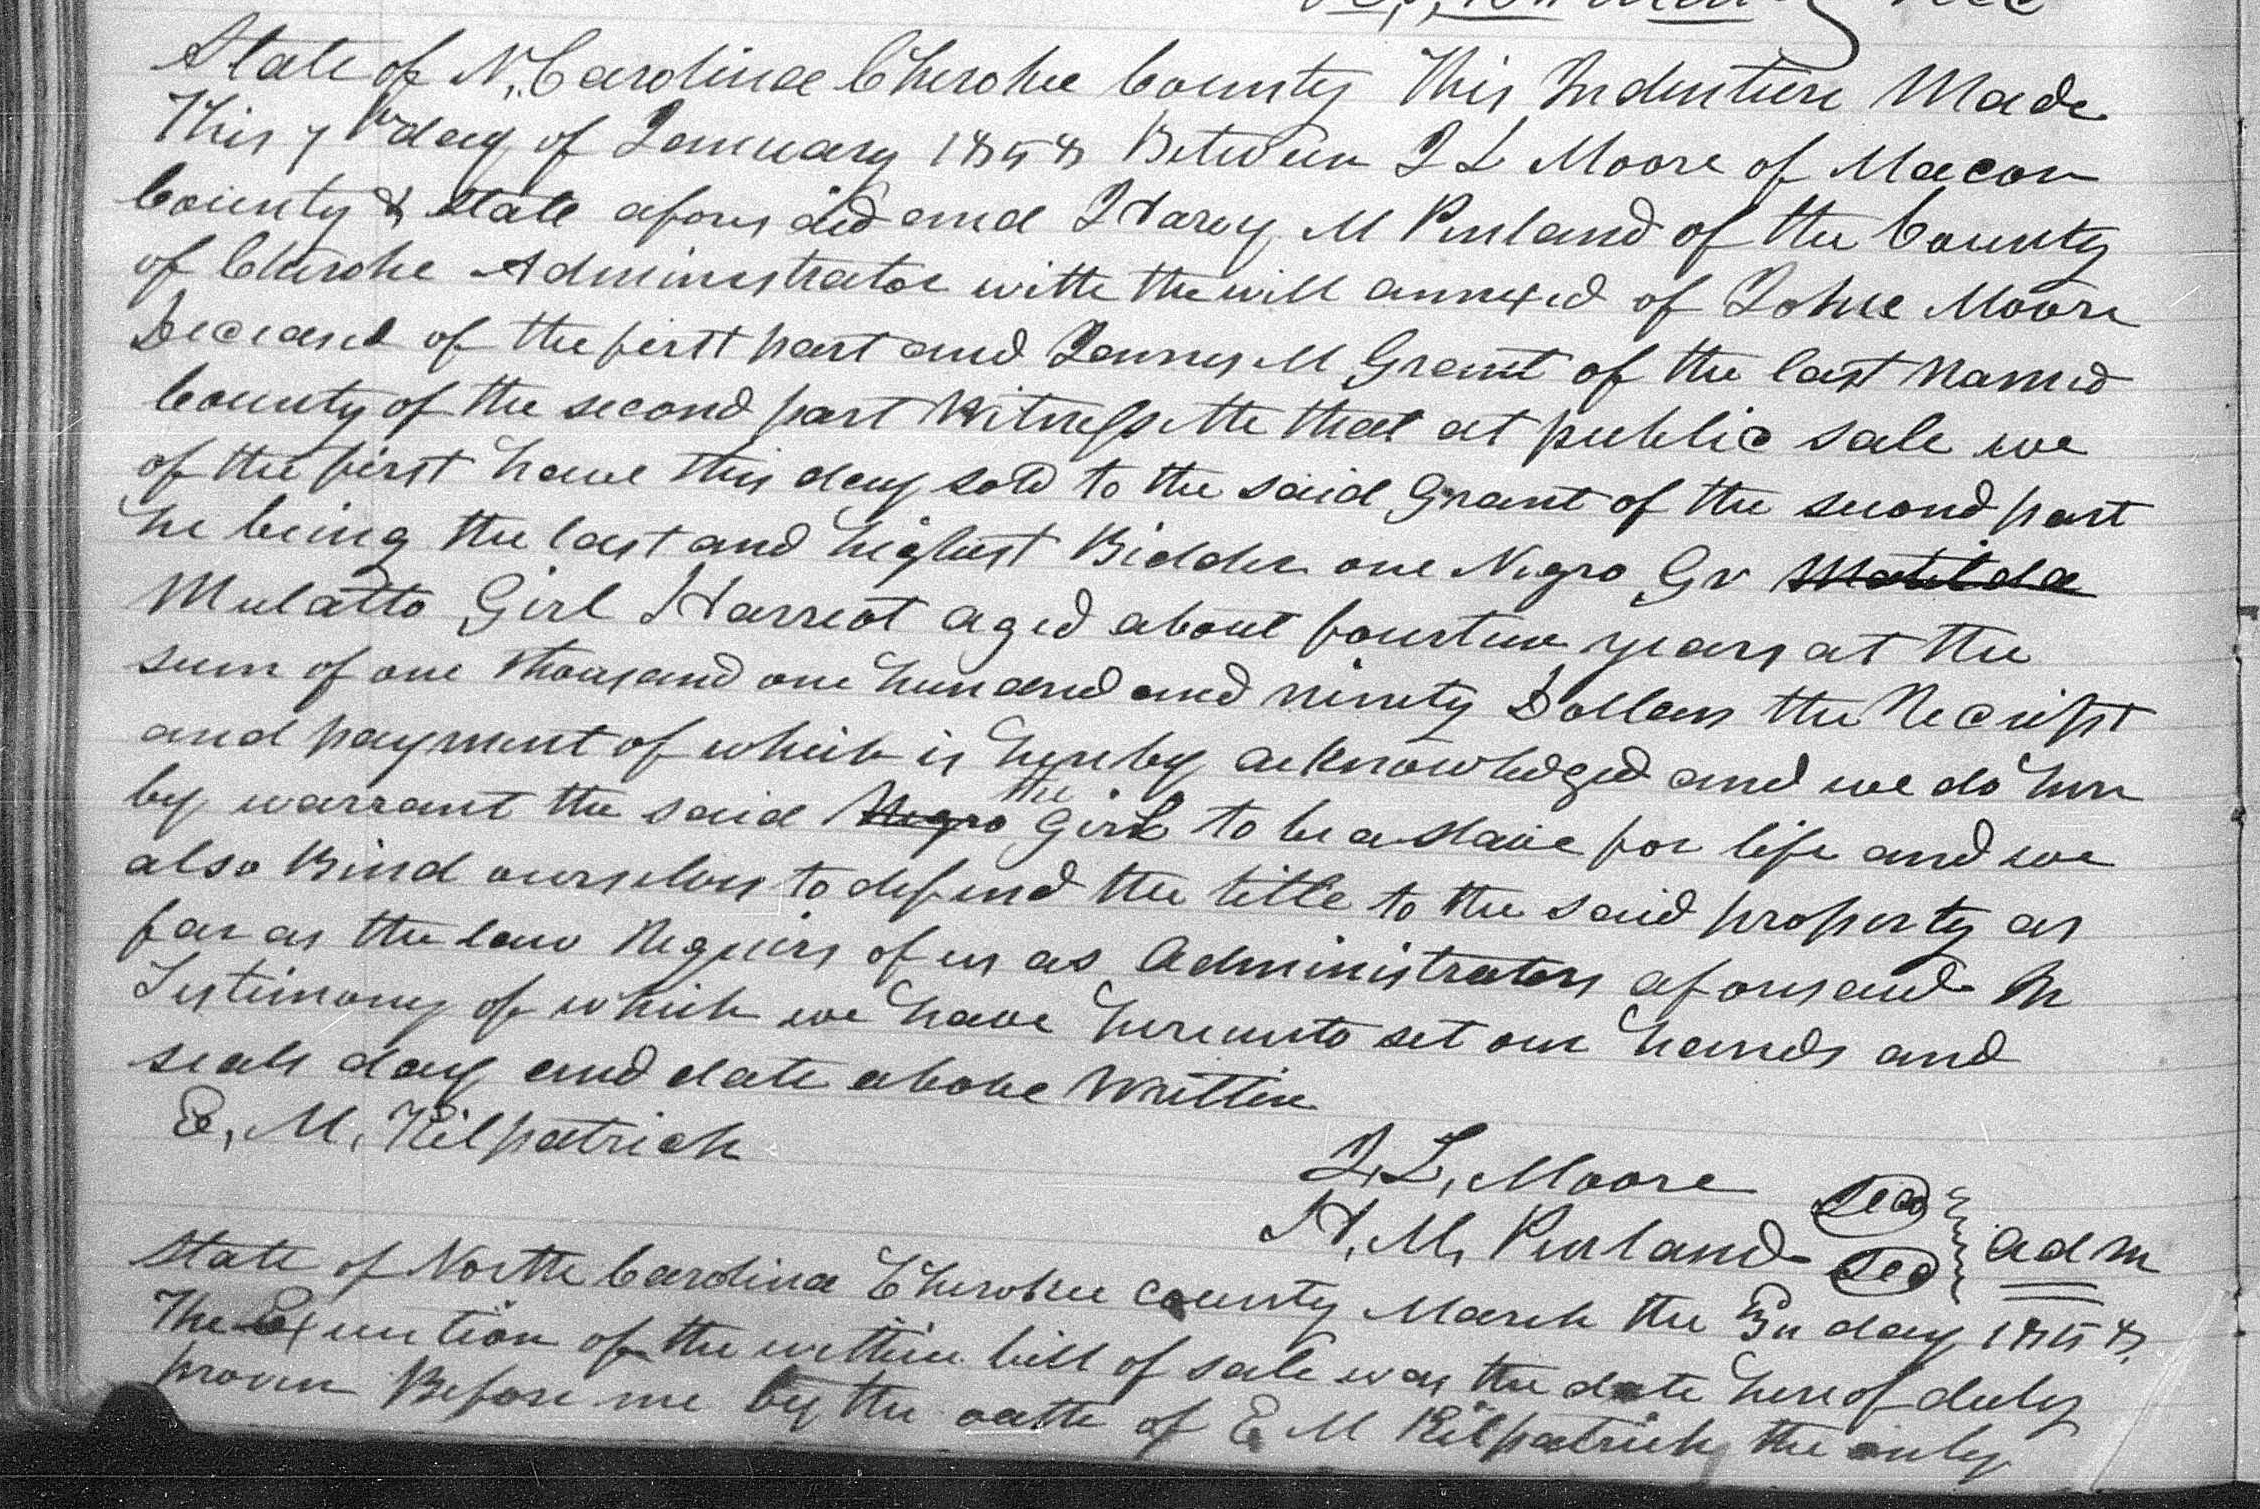 State of N. Carolina Cherokee County This Indenture Made
This 7th day of January 1858 Between J L Moore of Macon
County & state aforesaid and Harvy M Penland of the County
of Cherokee Administrator with the will annexed of John Moore
Deceased of the first part and James M Grant of the last named
County of the second part Witnesseth that at public sale we
of the first have this day sold to the said Grant of the second part
he being the last and highest Bidder one Negro Gr Matilda
Mulatto Girl Harreot aged about fourteen years at the
sum of one thousand one hundred and ninety Dollars the Receipt
and payment of which is hereby acknowledged and we do here
by warrant the said Negro the Girl to be a slave for life and we
also Bind ourselves to defend the title to the said property as
far as the law Requirs of us as Administrators aforesaid In
Testimony of which we have hereunto set our hands and
seals day and date above Written
E. M. Kilpatrick
J. L. Moore Seal
H. M. Penland Seal } adm
State of North Carolina Cherokee county March the day 1858
The Execution of the within bill of sale was the date hereof duly
proven Before me by the oath of E M Kilpatrick the only